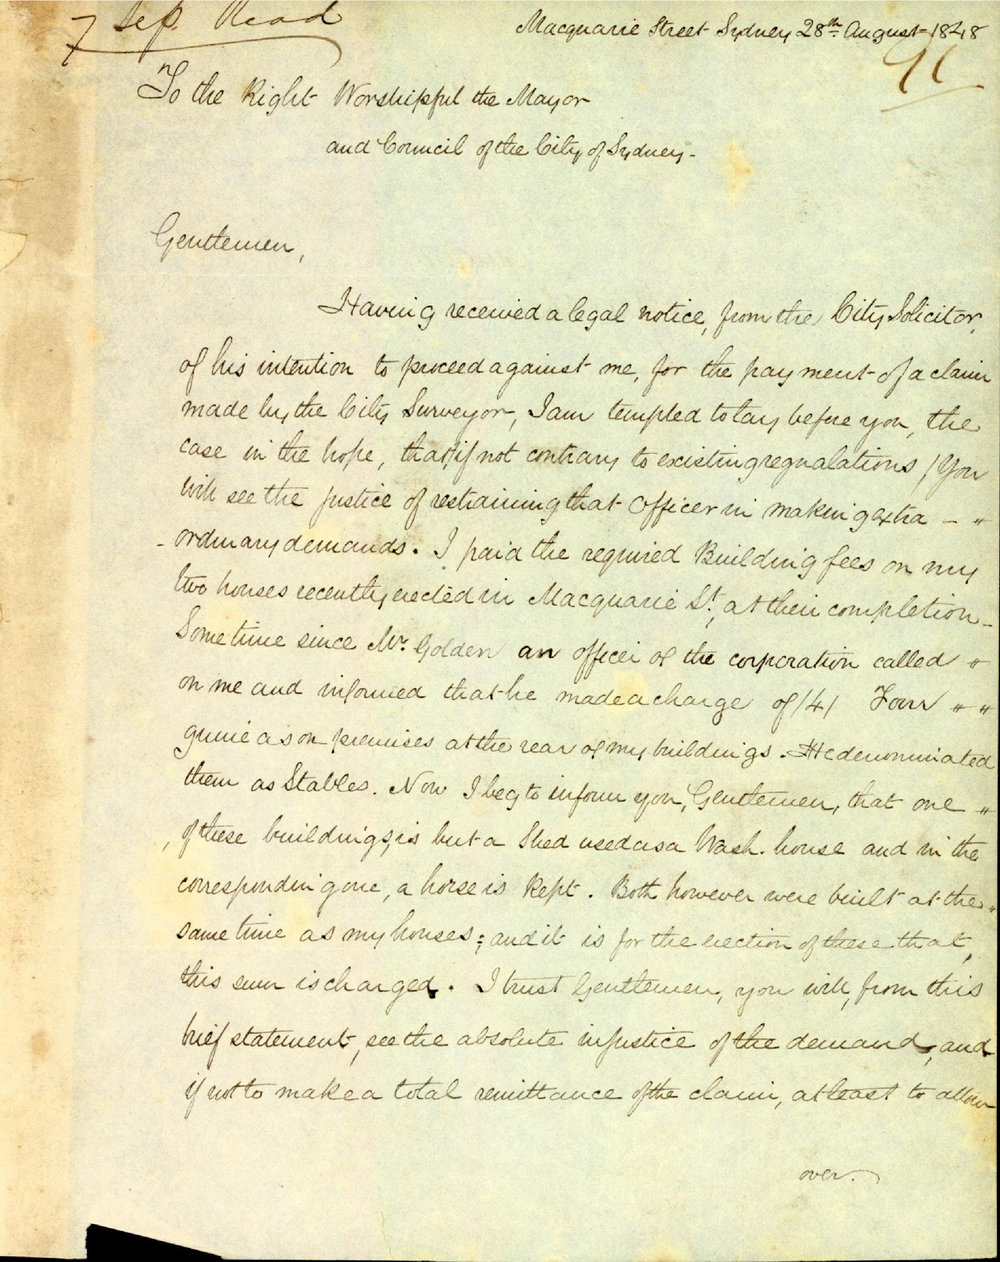 7 Sep. Read
Macquarie Street Sydney 28th August 1848
91
To the Right Worshipful the Mayor
and Council of the City of Sydney-
Gentlemen,
Having received a legal notice, from the City Solicitor,
of his intention to proceed against me, for the payment of a claim
made by the City Surveyor, I am tempted to lay before you, the
case in the hope, that, if not contrary to existing regualations, You
will see the justice of restraining that Officer in making extra - "
-ordinary demands. I paid the required Building fees on my
two houses recently erected in Macquarie St, at their completion-
Some time since Mr. Golden an officer of the corporation called "
on me and informed that he made a charge of /4/ Four " "
guineas on premises at the rear of my buildings. He denominated
them as Stables. Now I beg to inform you, Gentlemen, that one "
of these buildings, is but a Shed used as a Wash. house and in the
corresponding one, a horse is Kept. Both however were built at the "
same time as my houses; and it is for the erection of these that,
this sum is charged. I trust Gentlemen, you will, from this
brief statement, see the absolute injustice of the demand, and
if not to make a total remittance of the claim, at least to allow
over.